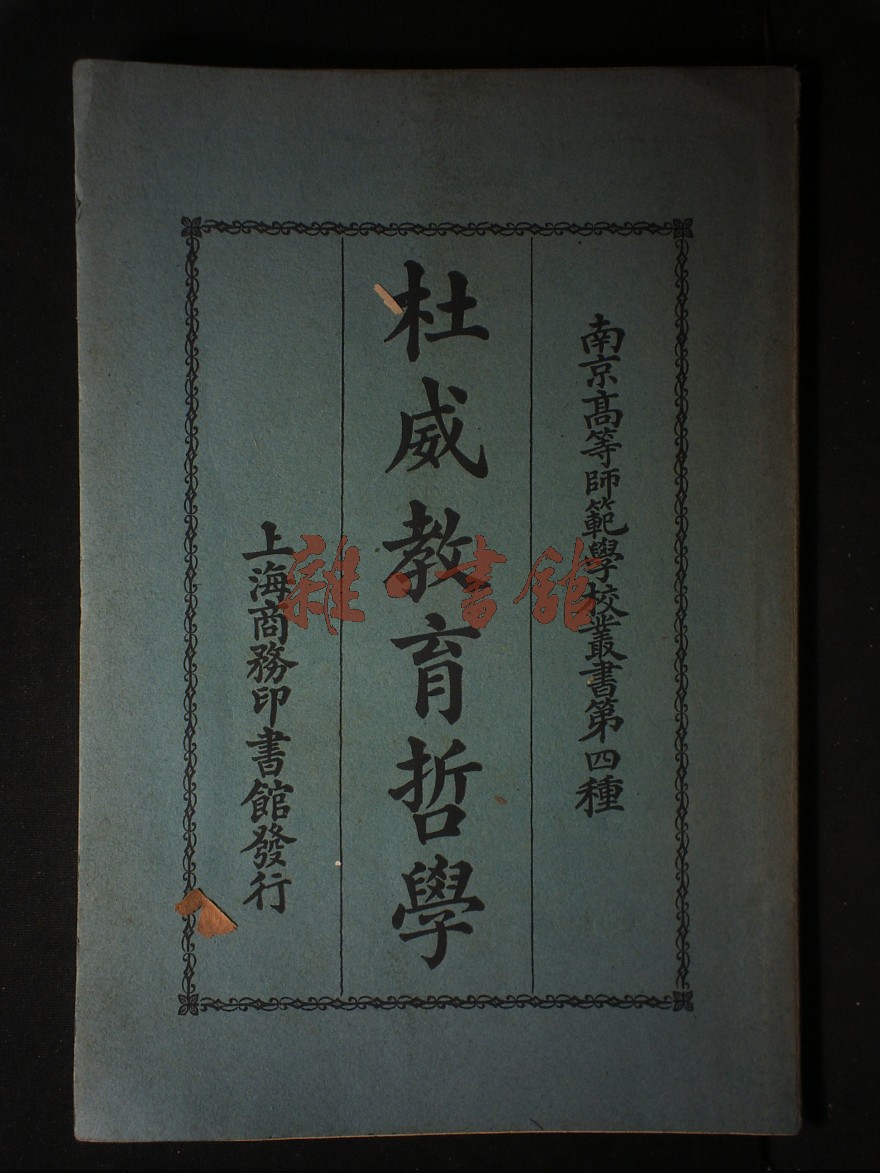 南京高等師範學校叢書第四種
杜威教育哲學
上海商務印書館發行
雜·書館